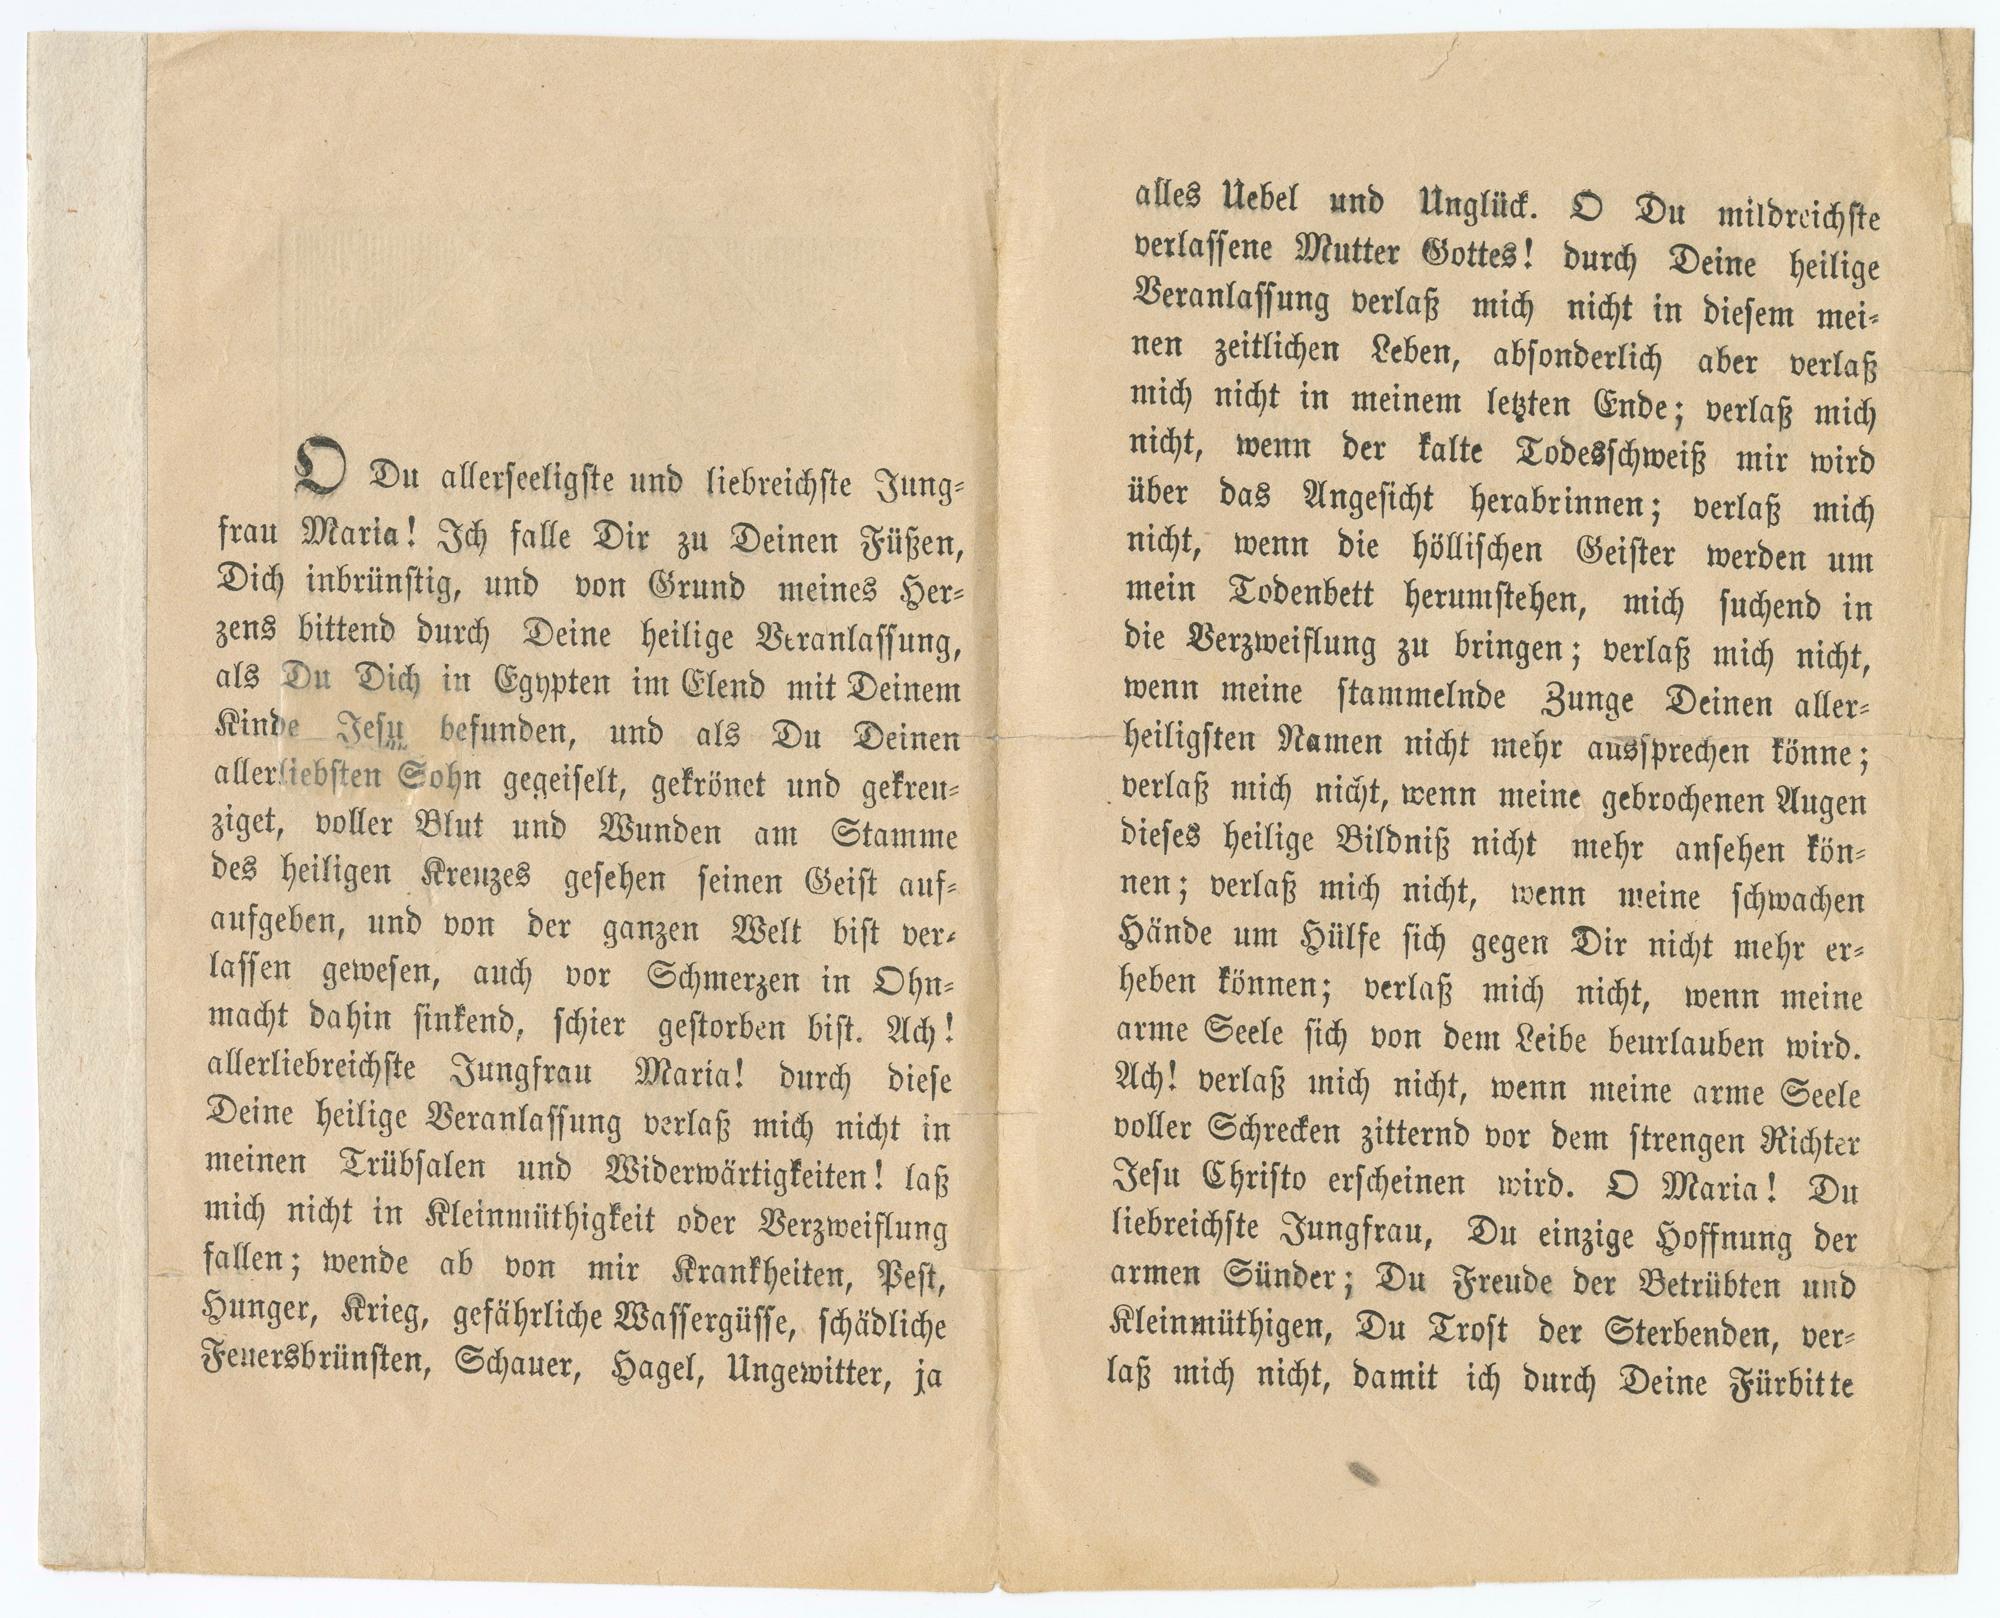 O Du allerseeligste und liebreichste Jung-
frau Maria! Ich falle Dir zu Deinen Füßen,
Dich inbrünstig, und von Grund meines Her-
zens bittend durch Deine heilige Veranlassung,
als Du Dich in Egypten im Elend mit Deinem
Kinde Jesu befunden, und als Du Deinen
allerliebsten Sohn gegeiselt, gekrönet und gekreu-
ziget, voller Blut und Wunden am Stamme
des heiligen Kreuzes gesehen seinen Geist auf-
aufgeben, und von der ganzen Welt bist ver-
lassen gewesen, auch vor Schmerzen in Ohn-
macht dahin sinkend, schier gestorben bist. Ach!
allerliebreichste Jungfrau Maria! durch diese
Deine heilige Veranlassung verlaß mich nicht in
meinen Trübsalen und Widerwärtigkeiten! laß
mich nicht in Kleinmüthigkeit oder Verzweiflung
fallen; wende ab von mir Krankheiten, Pest,
Hunger, Krieg, gefährliche Wassergüsse, schädliche
Feuersbrünsten, Schauer, Hagel, Ungewitter, ja
alles Uebel und Unglück. O Du mildreichste
verlassene Mutter Gottes! durch Deine heilige
Veranlassung verlaß mich nicht in diesem mei-
nen zeitlichen Leben, absonderlich aber verlaß
mich nicht in meinem letzten Ende; verlaß mich
nicht, wenn der kalte Todesschweiß mir wird
über das Angesicht herabrinnen; verlaß mich
nicht, wenn die höllischen Geister werden um
mein Todenbett herumstehen, mich suchend in
die Verzweiflung zu bringen; verlaß mich nicht,
wenn meine stammelnde Zunge Deinen aller-
heiligsten Namen nicht mehr aussprechen könne;
verlaß mich nicht, wenn meine gebrochenen Augen
dieses heilige Bildniß nicht mehr ansehen kön-
nen; verlaß mich nicht, wenn meine schwachen
Hände um Hülfe sich gegen Dir nicht mehr er-
heben können; verlaß mich nicht, wenn meine
arme Seele sich von dem Leibe beurlauben wird.
Ach! verlaß mich nicht, wenn meine arme Seele
voller Schrecken zitternd vor dem strengen Richter
Jesu Christo erscheinen wird. O Maria! Du
liebreichste Jungfrau, Du einzige Hoffnung der
armen Sünder; Du Freude der Betrübten und
Kleinmüthigen, Du Trost der Sterbenden, ver-
laß mich nicht, damit ich durch Deine Fürbitte